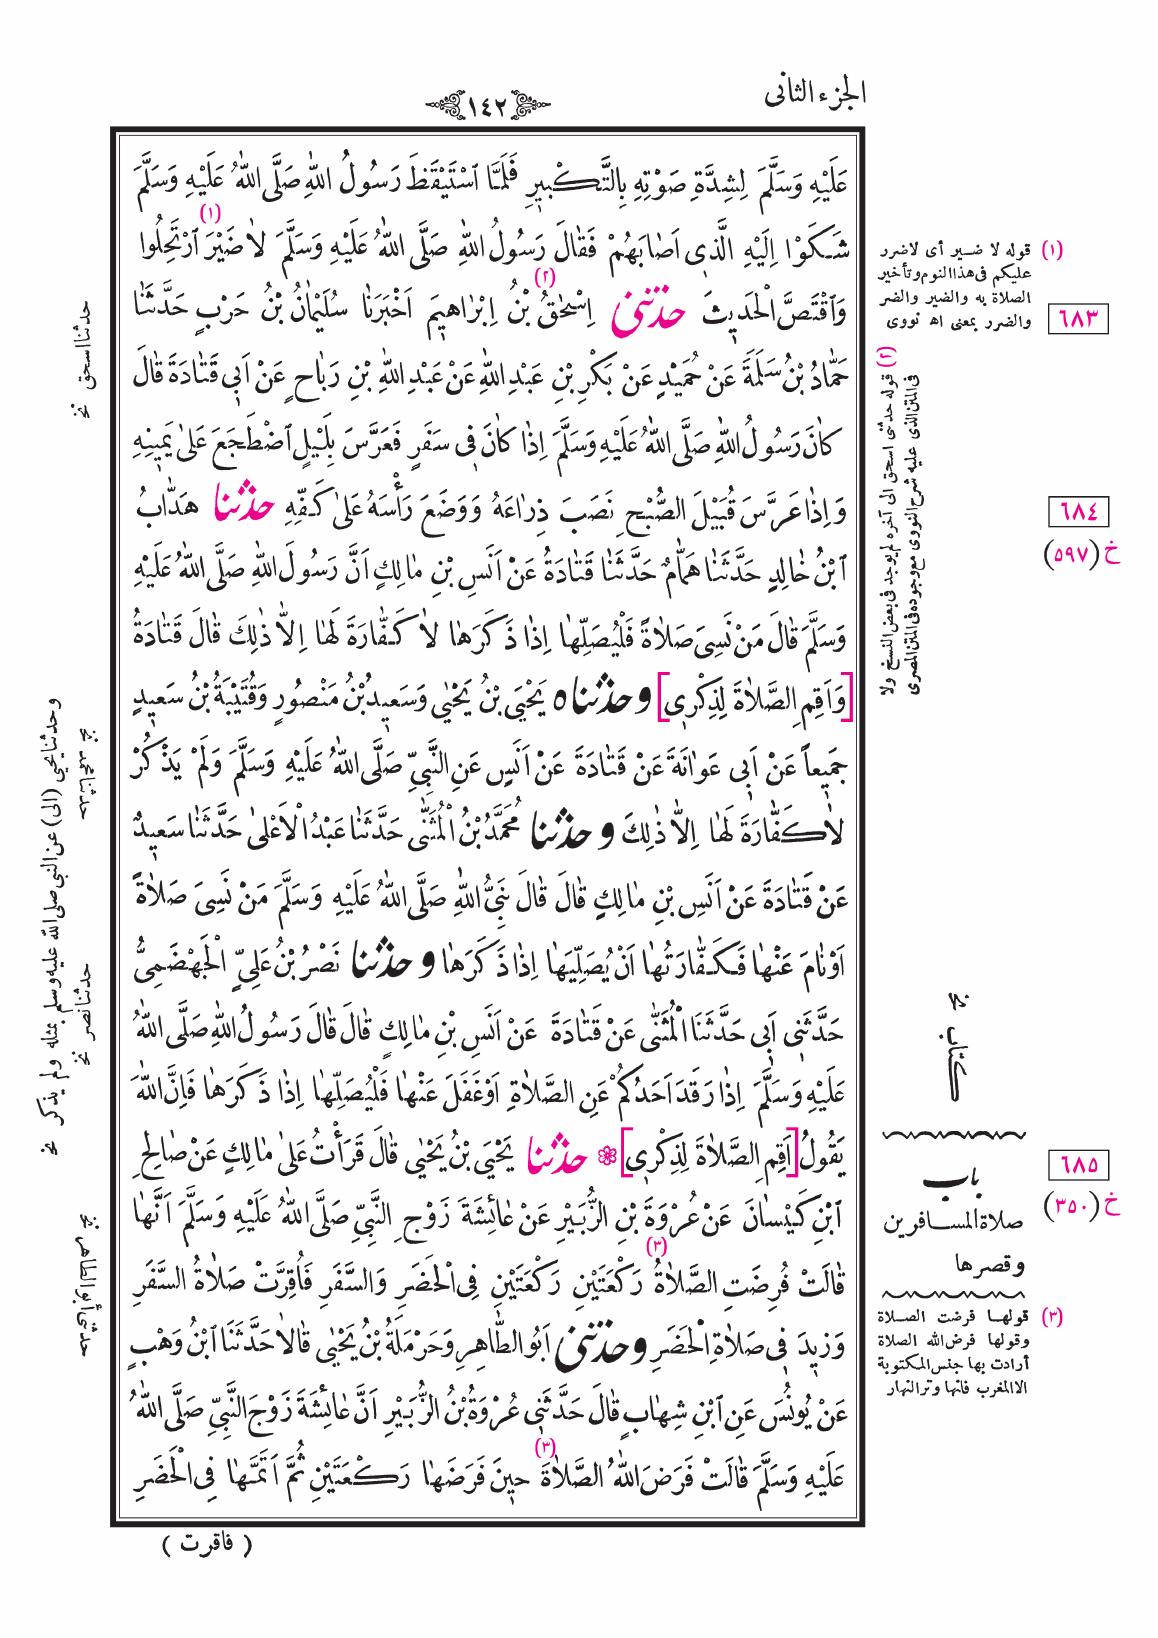 الجزء الثانى
١٤٢
عَلَيْهِ وَسَلَّمَ لِشِدَّةِ صَوْتِهِ بِالتَّكْبيرِ فَلَمَّا ٱسْتَيْقَظَ رَسُولُ اللهِ صَلَّى اللهُ عَلَيْهِ وَسَلَّمَ
شَكَوْا اِلَيْهِ الَّذى اَصٰابَهُمْ فَقٰالَ رَسُولُ اللهِ صَلَّى اللهُ عَلَيْهِ وَسَلَّمَ لاٰ ضَيْرَ (١) ٱرْتَحِلُوا
وَٱقْتَصَّ الْحَديثَ حدثنى (٢) اِسْحٰقُ بْنُ اِبْرٰاهيمَ اَخْبَرَنٰا سُلَيْمٰانُ بْنُ حَرْبٍ حَدَّثَنٰا
حَمّٰادُ بْنُ سَلَمَةَ عَنْ حُمَيْدٍ عَنْ بَكْرِ بْنِ عَبْدِ اللهِ عَنْ عَبْدِ اللهِ بْنِ رَبٰاحٍ عَنْ اَبى قَتٰادَةَ قٰالَ
كٰانَ رَسُولُ اللهِ صَلَّى اللهُ عَلَيْهِ وَسَلَّمَ اِذٰا كٰانَ فى سَفَرٍ فَعَرَّسَ بِلَيْلٍ ٱضْطَجَعَ عَلىٰ يَمينِهِ
وَاِذٰا عَرَّسَ قُبَيْلَ الصُّبْحِ نَصَبَ ذِرٰاعَهُ وَوَضَعَ رَأْسَهُ عَلىٰ كَفِّهِ حدثنا هَدّٰابُ
ٱبْنُ خٰالِدٍ حَدَّثَنٰا هَمّٰامٌ حَدَّثَنٰا قَتٰادَةُ عَنْ اَنَسِ بْنِ مٰالِكٍ اَنَّ رَسُولَ اللهِ صَلَّى اللهُ عَلَيْهِ
وَسَلَّمَ قٰالَ مَنْ نَسِىَ صَلاٰةً فَلْيُصَلِّهٰا اِذٰا ذَكَرَهٰا لاٰ كَفّٰارَةَ لَهٰا اِلاّٰ ذٰلِكَ قٰالَ قَتٰادَةُ
[وَاَقِمِ الصَّلاٰةَ لِذِكْرى] وحدثناه يَحْيَى بْنُ يَحْيٰى وَسَعيدُ بْنُ مَنْصُورٍ وَقُتَيْبَةُ بْنُ سَعيدٍ
جَميعاً عَنْ اَبى عَوٰانَةَ عَنْ قَتٰادَةَ عَنْ اَنَسٍ عَنِ النَّبِيِّ صَلَّى اللهُ عَلَيْهِ وَسَلَّمَ وَلَمْ يَذْكُرْ
لاٰ كَفّٰارَةَ لَهٰا اِلاّٰ ذٰلِكَ وحدثنا مُحَمَّدُ بْنُ الْمُثَنّٰى حَدَّثَنٰا عَبْدُ الْاَعْلىٰ حَدَّثَنٰا سَعيدٌ
عَنْ قَتٰادَةَ عَنْ اَنَسِ بْنِ مٰالِكٍ قٰالَ قٰالَ نَبِىُّ اللهِ صَلَّى اللهُ عَلَيْهِ وَسَلَّمَ مَنْ نَسِىَ صَلاٰةً
اَوْنٰامَ عَنْهٰا فَكَفّٰارَتُهٰا اَنْ يُصَلِّيَهٰا اِذٰا ذَكَرَهٰا وحدثنا نَصْرُ بْنُ عَلِيٍّ الْجَهْضَمِىُّ
حَدَّثَنى اَبى حَدَّثَنَا الْمُثَنّٰى عَنْ قَتٰادَةَ عَنْ اَنَسِ بْنِ مٰالِكٍ قٰالَ قٰالَ رَسُولُ اللهِ صَلَّى اللهُ
عَلَيْهِ وَسَلَّمَ اِذٰا رَقَدَ اَحَدُكُمْ عَنِ الصَّلاٰةِ اَوْغَفَلَ عَنْهٰا فَلْيُصَلِّهٰا اِذٰا ذَكَرَهٰا فَاِنَّ اللهَ
يَقُولُ [اَقِمِ الصَّلاٰةَ لِذِكْرى] حدثنا يَحْيَى بْنُ يَحْيٰى قٰالَ قَرَأْتُ عَلىٰ مٰالِكٍ عَنْ صٰالِحِ
ٱبْنِ كَيْسٰانَ عَنْ عُرْوَةَ بْنِ الزُّبَيْرِ عَنْ عٰائِشَةَ زَوْجِ النَّبِيِّ صَلَّى اللهُ عَلَيْهِ وَسَلَّمَ اَنَّهٰا
قٰالَتْ فُرِضَتِ الصَّلاٰةُ (٣) رَكْعَتَيْنِ رَكْعَتَيْنِ فِى الْحَضَرِ وَالسَّفَرِ فَاُقِرَّتْ صَلاٰةُ السَّفَرِ
وَزيدَ فى صَلاٰةِ الْحَضَرِ وحدثنى اَبُو الطّٰاهِرِ وَحَرْمَلَةُ بْنُ يَحْيٰى قٰالاٰ حَدَّثَنَا ٱبْنُ وَهْبٍ
عَنْ يُونُسَ عَنِ ٱبْنِ شِهٰابٍ قٰالَ حَدَّثَنى عُرْوَةُ بْنُ الزُّبَيْرِ اَنَّ عٰائِشَةَ زَوْجَ النَّبِيِّ صَلَّى اللهُ
عَلَيْهِ وَسَلَّمَ قٰالَتْ فَرَضَ اللهُ الصَّلاٰةَ (٣) حينَ فَرَضَهٰا رَكْعَتَيْنِ ثُمَّ اَتَمَّهٰا فِى الْحَضَرِ
( فاقرت )
(١) قوله لا ضير أى لاضرر
عليكم فى هذا النوم وتأخير
الصلاة به والضير والضر
والضرر بمعنى اه نووى
٦٨٣
(٢) قوله حدثنى اسحق الى آخره لم يوجد فى بعض النسخ ولا
فى المتن الذى عليه شرح النووى مع وجوده فى المتن المصرى
٦٨٤
خ (٥٩٧)
كتاب نخ
٦٨٥
خ (٣٥٠)
باب
صلاة المسافرين
وقصرها
(٣) قولها فرضت الصلاة
وقولها فرض الله الصلاة
أرادت بها جنس المكتوبة
الا المغرب فانها وتر النهار
حدثنا اسحق نخ
حدثنا محمد نخ
وحدثنا يحيى (الى) عن النبى صلى الله عليه وسلم بمثله ولم يذكر نخ
حدثنا نصر نخ
حدثنى أبو الطاهر نخ